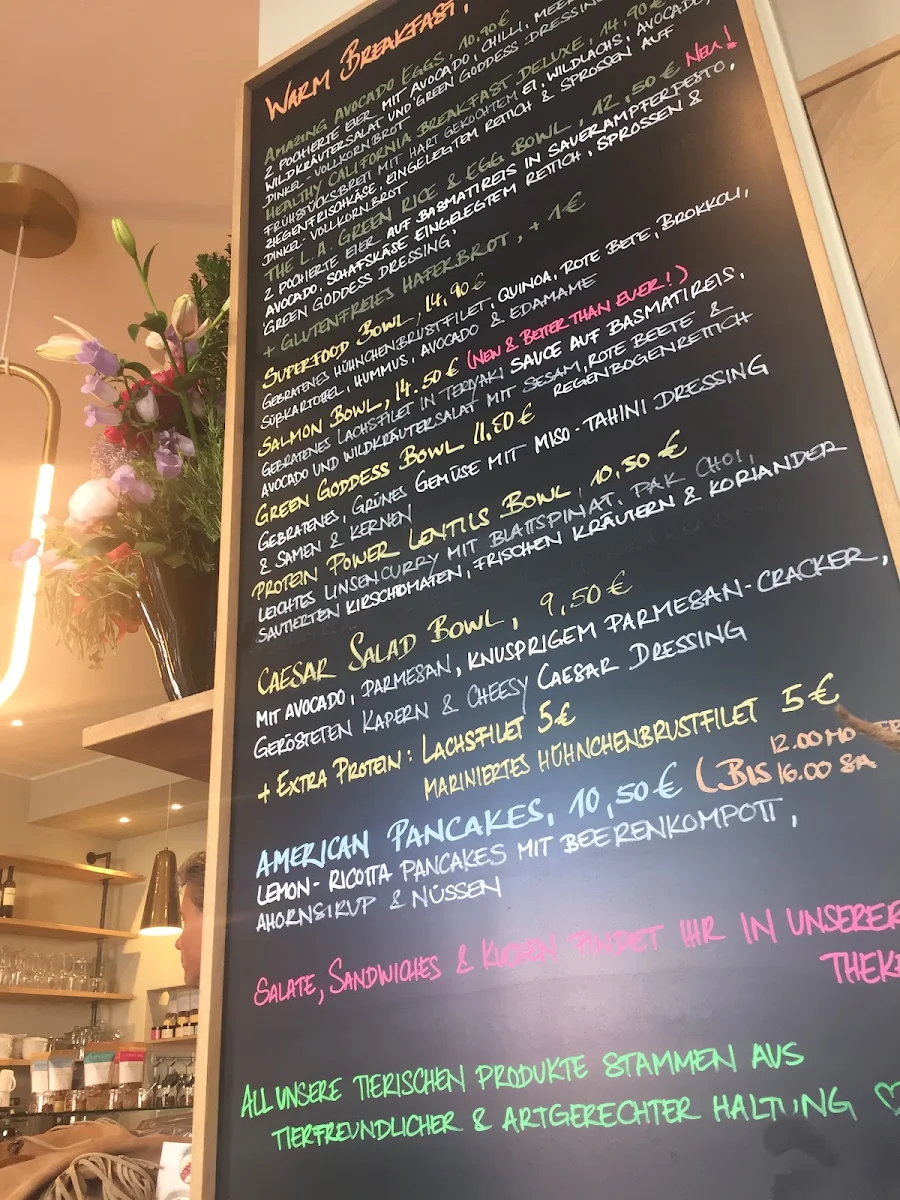 WARM BREAKFAST,
AMAZING AVOCADO EGGS, 10,90€
2 POCHIERTE EIER MIT AVOCADO, CHILLI,
WILDKRÄUTERSALAT UND 'GREEN GODDESS DRESSING
DINKEL-VOLLKORNBROT
HEALTHY CALIFORNIA BREAKFAST DELUXE, 14,90€
FRÜHSTÜCKSBRETT MIT HART GEKOCHTEM EI, WILDLACHS, AVOCADO,
ZIEGENFRISCHKÄSE, EINGELEGTEM RETTICH & SPROSSEN AUF
DINKEL-VOLLKORNBROT
THE L.A. GREEN RICE & EGG BOWL, 12,50€ NEU!
2 POCHIERTE EIER AUF BASMATIREIS IN SAUERAMPFERPESTO,
AVOCADO, SCHAFSKÄSE EINGELEGTEM RETTICH, SPROSSEN &
'GREEN GODDESS DRESSING'
+ GLUTENFREIES HAFERBROT, +1€
SUPERFOOD BOWL, 14,90€
GEBRATENES HÜHNCHENBRUSTFILET, QUINOA, ROTE BETE, BROKKOLI,
SÜßKARTOFFEL, HUMMUS, AVOCADO & EDAMAME
SALMON BOWL, 14.50€ (NEW & BETTER THAN EVER!)
GEBRATENES LACHSFILET IN TERIYAKI SAUCE AUF BASMATIREIS,
AVOCADO UND WILDKRÄUTERSALAT MIT SESAM, ROTE BEETE &
REGENBOGENRETTICH
GREEN GODDESS BOWL 11.50€
GEBRATENES, GRÜNES GEMÜSE MIT MISO-TAHINI DRESSING
& SAMEN & KERNEN
PROTEIN POWER LENTILS BOWL, 10,50€
LEICHTES LINSENCURRY MIT BLATTSPINAT, PAK CHOI,
SAUTIERTEN KIRSCHTOMATEN, FRISCHEN KRÄUTERN & KORIANDER
CAESAR SALAD BOWL, 9,50€
MIT AVOCADO, PARMESAN, KNUSPRIGEM PARMESAN-CRACKER,
GERÖSTETEN KAPERN & CHEESY CAESAR DRESSING
+ EXTRA PROTEIN: LACHSFILET 5€
MARINIERTES HÜHNCHENBRUSTFILET 5€
AMERICAN PANCAKES, 10,50€ (BIS 12.00 MO
16.00 SA
LEMON-RICOTTA PANCAKES MIT BEERENKOMPOTT,
AHORNSIRUP & NÜSSEN
SALATE, SANDWICHES & KUCHEN FINDET IHR IN UNSERER
THEKE
ALL UNSERE TIERISCHEN PRODUKTE STAMMEN AUS
TIERFREUNDLICHER & ARTGERECHTER HALTUNG ♡